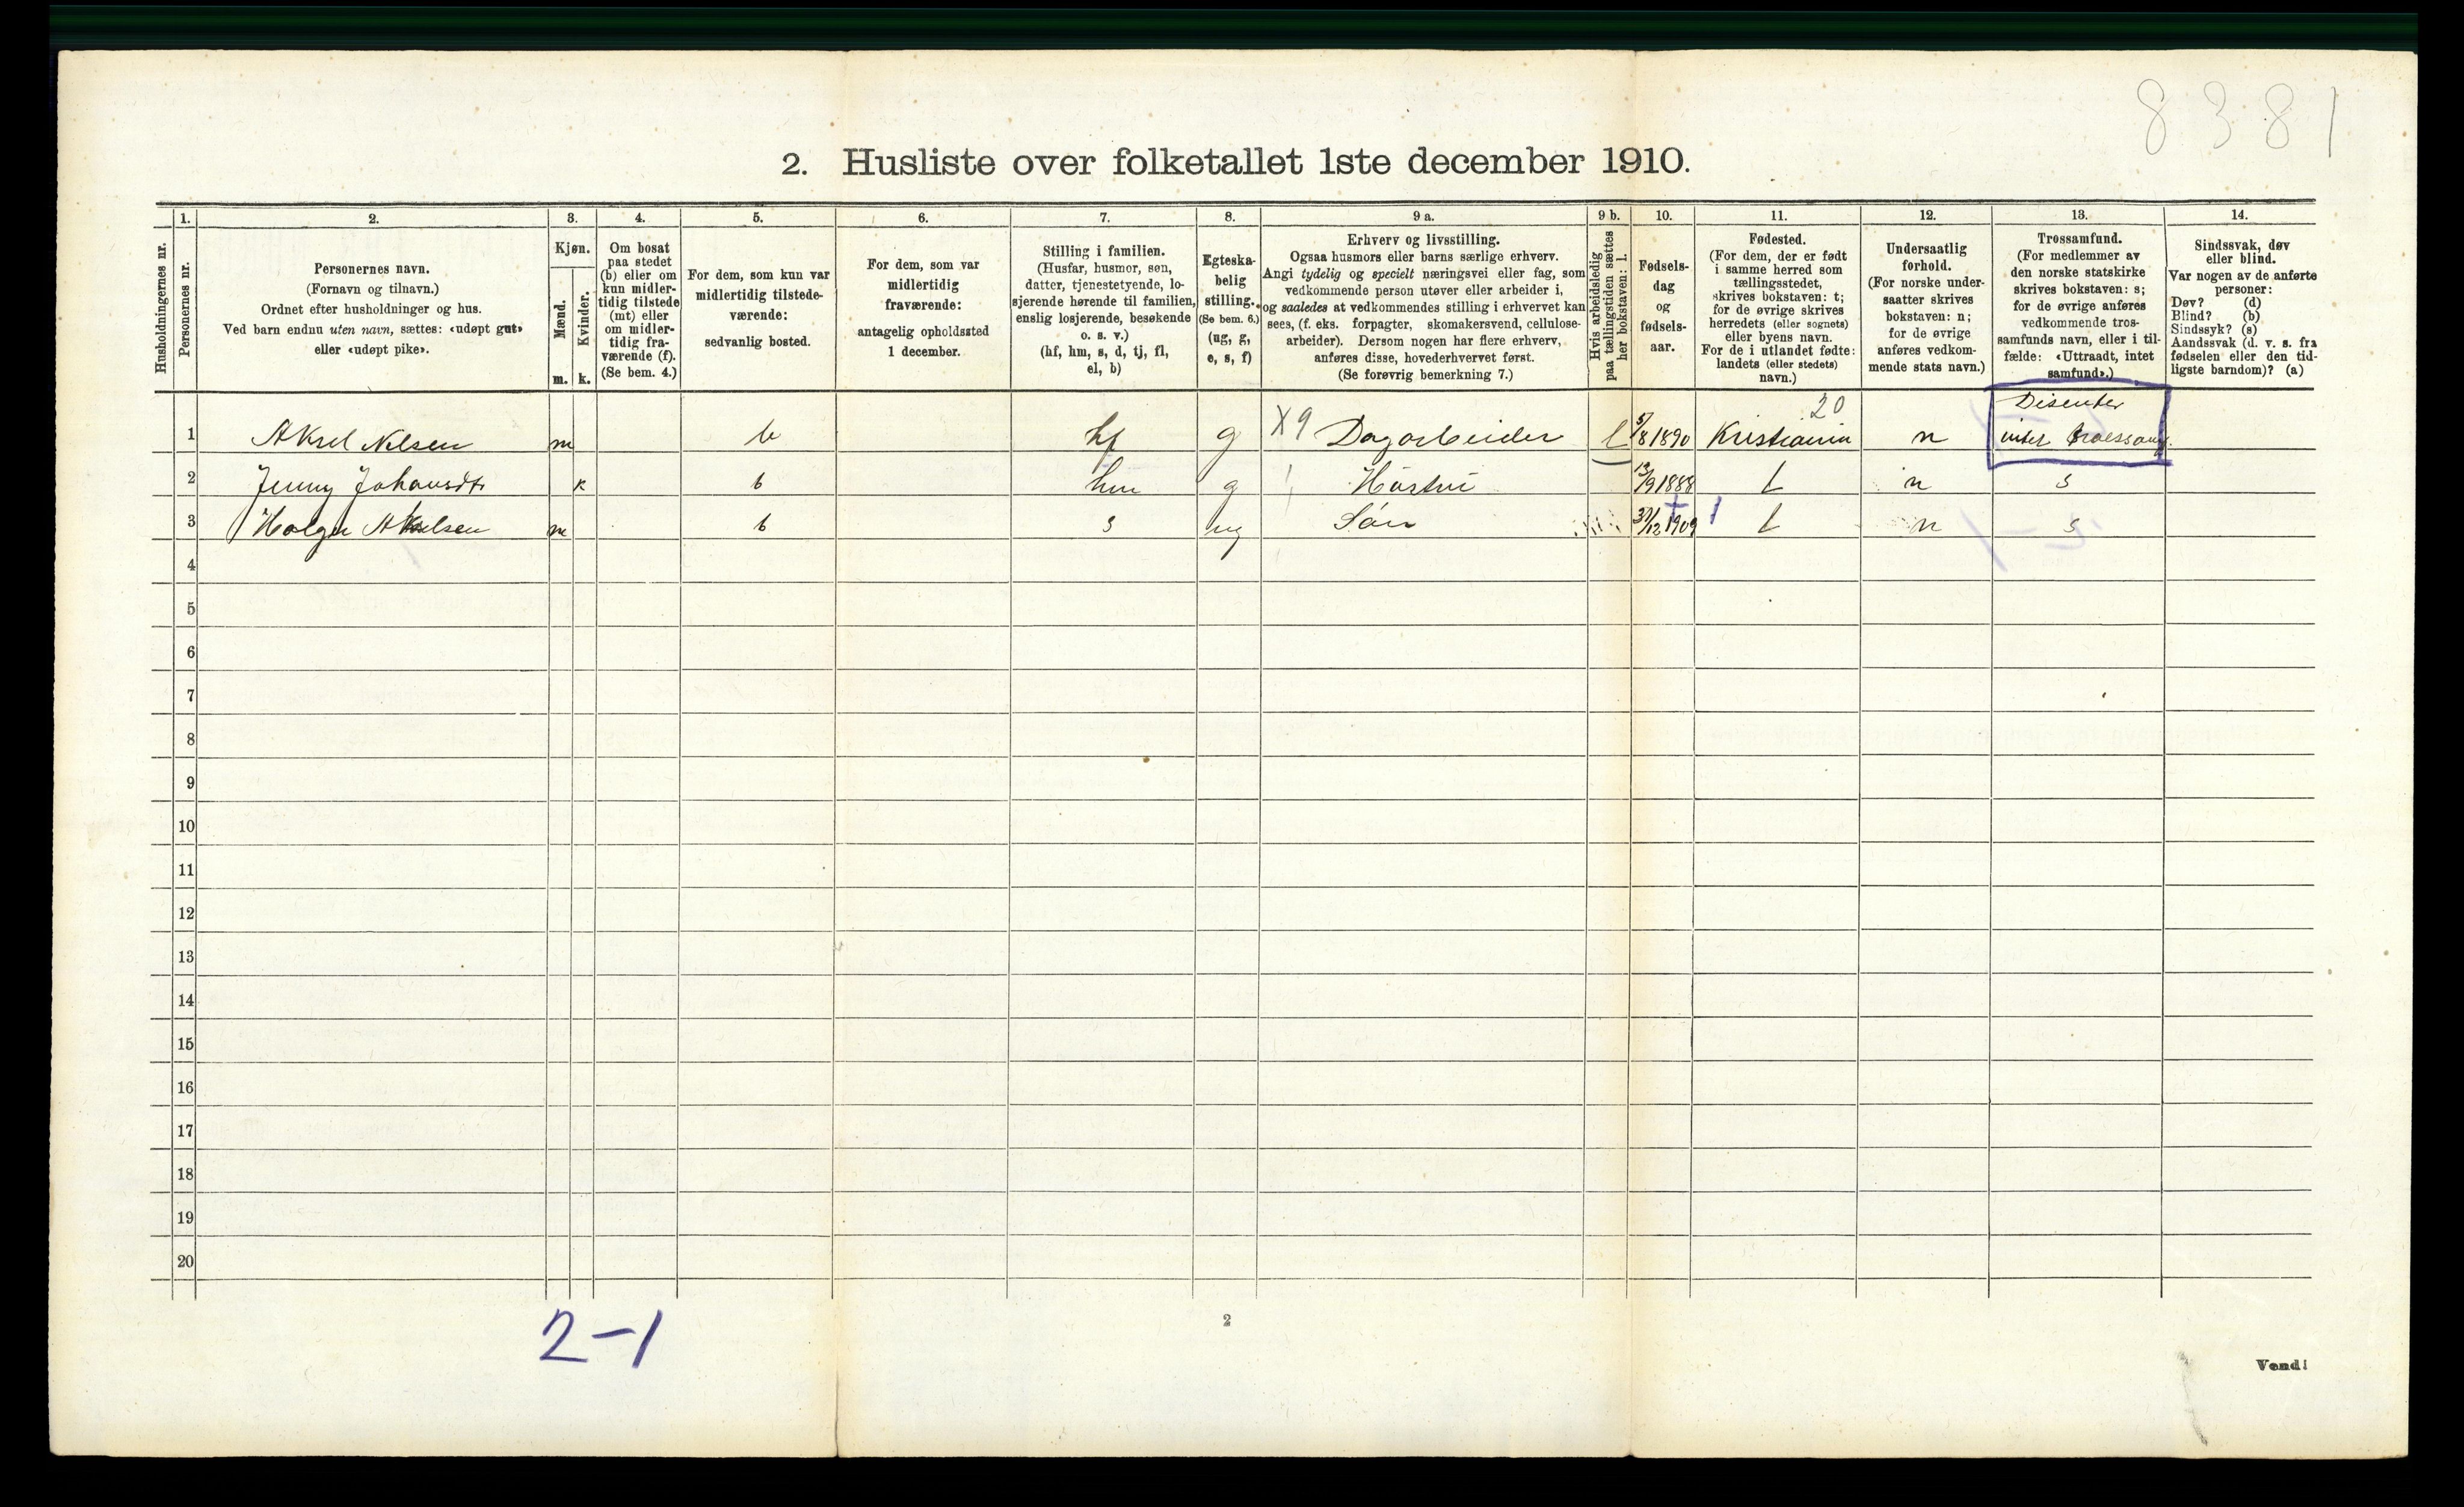 8381
2. Husliste over folketallet 1ste december 1910.
Husholdningernes nr.
1.
Personernes nr.
2.
Personernes navn.
(Fornavn og tilnavn.)
Ordnet efter husholdninger og hus.
Ved barn endnu uten navn, sættes: «udøpt gut»
eller «udøpt pike».
3.
Kjøn.
Mænd.
Kvinder.
m. k.
4.
Om bosat
paa stedet
(b) eller om
kun midler-
tidig tilstede
(mt) eller
om midler-
tidig fra-
værende (f).
(Se bem. 4.)
5.
For dem, som kun var
midlertidig tilstede-
værende:
sedvanlig bosted.
6.
For dem, som var
midlertidig
fraværende:
antagelig opholdssted
1 december.
7.
Stilling i familien.
(Husfar, husmor, søn,
datter, tjenestetyende, lo-
sjerende hørende til familien,
enslig losjerende, besøkende
o. s. v.)
(hf, hm, s, d, tj, fl,
el, b)
8.
Egteska-
belig
stilling.
(Se bem. 6.)
(ug, g,
e, s, f)
9 a.
Erhverv og livsstilling.
Ogsaa husmors eller barns særlige erhverv.
Angi tydelig og specielt næringsvei eller fag, som
vedkommende person utøver eller arbeider i,
og saaledes at vedkommendes stilling i erhvervet kan
sees, (f. eks. forpagter, skomakersvend, cellulose-
arbeider). Dersom nogen har flere erhverv,
anføres disse, hovederhvervet først.
(Se forøvrig bemerkning 7.)
9 b.
Hvis arbeidsledig
paa tællingstiden sættes
her bokstaven: l.
10.
Fødsels-
dag
og
fødsels-
aar.
11.
Fødested.
(For dem, der er født
i samme herred som
tællingsstedet,
skrives bokstaven: t;
for de øvrige skrives
herredets (eller sognets)
eller byens navn.
For de i utlandet fødte:
landets (eller stedets)
navn.)
12.
Undersaatlig
forhold.
(For norske under-
saatter skrives
bokstaven: n;
for de øvrige
anføres vedkom-
mende stats navn.)
13.
Trossamfund.
(For medlemmer av
den norske statskirke
skrives bokstaven: s;
for de øvrige anføres
vedkommende tros-
samfunds navn, eller i til-
fælde: «Uttraadt, intet
samfund».)
14.
Sindssvak, døv
eller blind.
Var nogen av de anførte
personer:
Døv? (d)
Blind? (b)
Sindssyk? (s)
Aandssvak (d. v. s. fra
fødselen eller den tid-
ligste barndom)? (a)
20 Disenter
1 Aksel Nelsen m b hf g X9 Dagarbeider l 5/8 1890 Kristiania n
2 Jenny Johansdtr k b hm g Hústrú 13/9 1888 t n s
3 Holger Akselsen m b s ug Sön 31/12 1909 1 t n s
4
5
6
7
8
9
10
11
12
13
14
15
16
17
18
19
20
2-1
2
Vend!